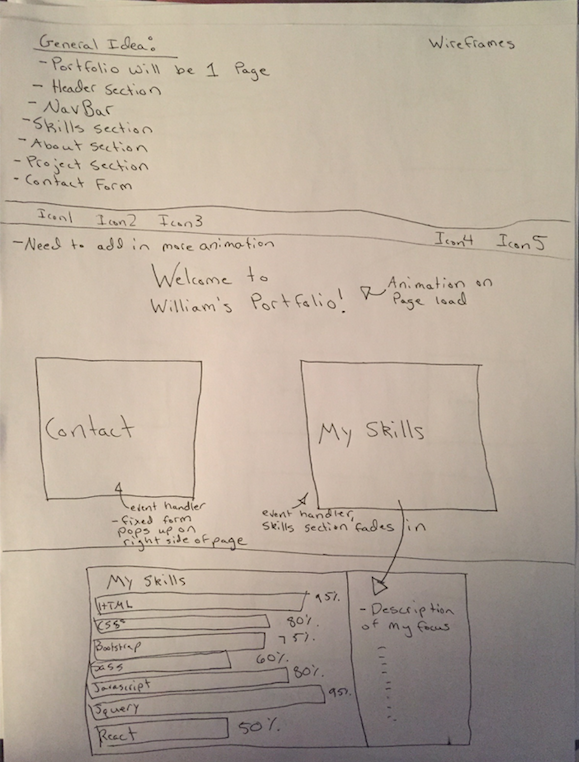 General Idea:
Wireframes
- Portfolio will be 1 Page
- Header section
- NavBar
- Skills section
- About section
- Project section
- Contact Form
Icon1 Icon2 Icon3
Icon4 Icon5
- Need to add in more animation
Welcome to
William's Portfolio!
Animation on
Page load
Contact
My Skills
event handler
- fixed form
pops up on
right side of page
event handler,
skills section fades in
My Skills
HTML 95%
CSS 80%
Bootstrap 75%
Sass 60%
Javascript 80%
Jquery 95%
React 50%
- Description
of my focus